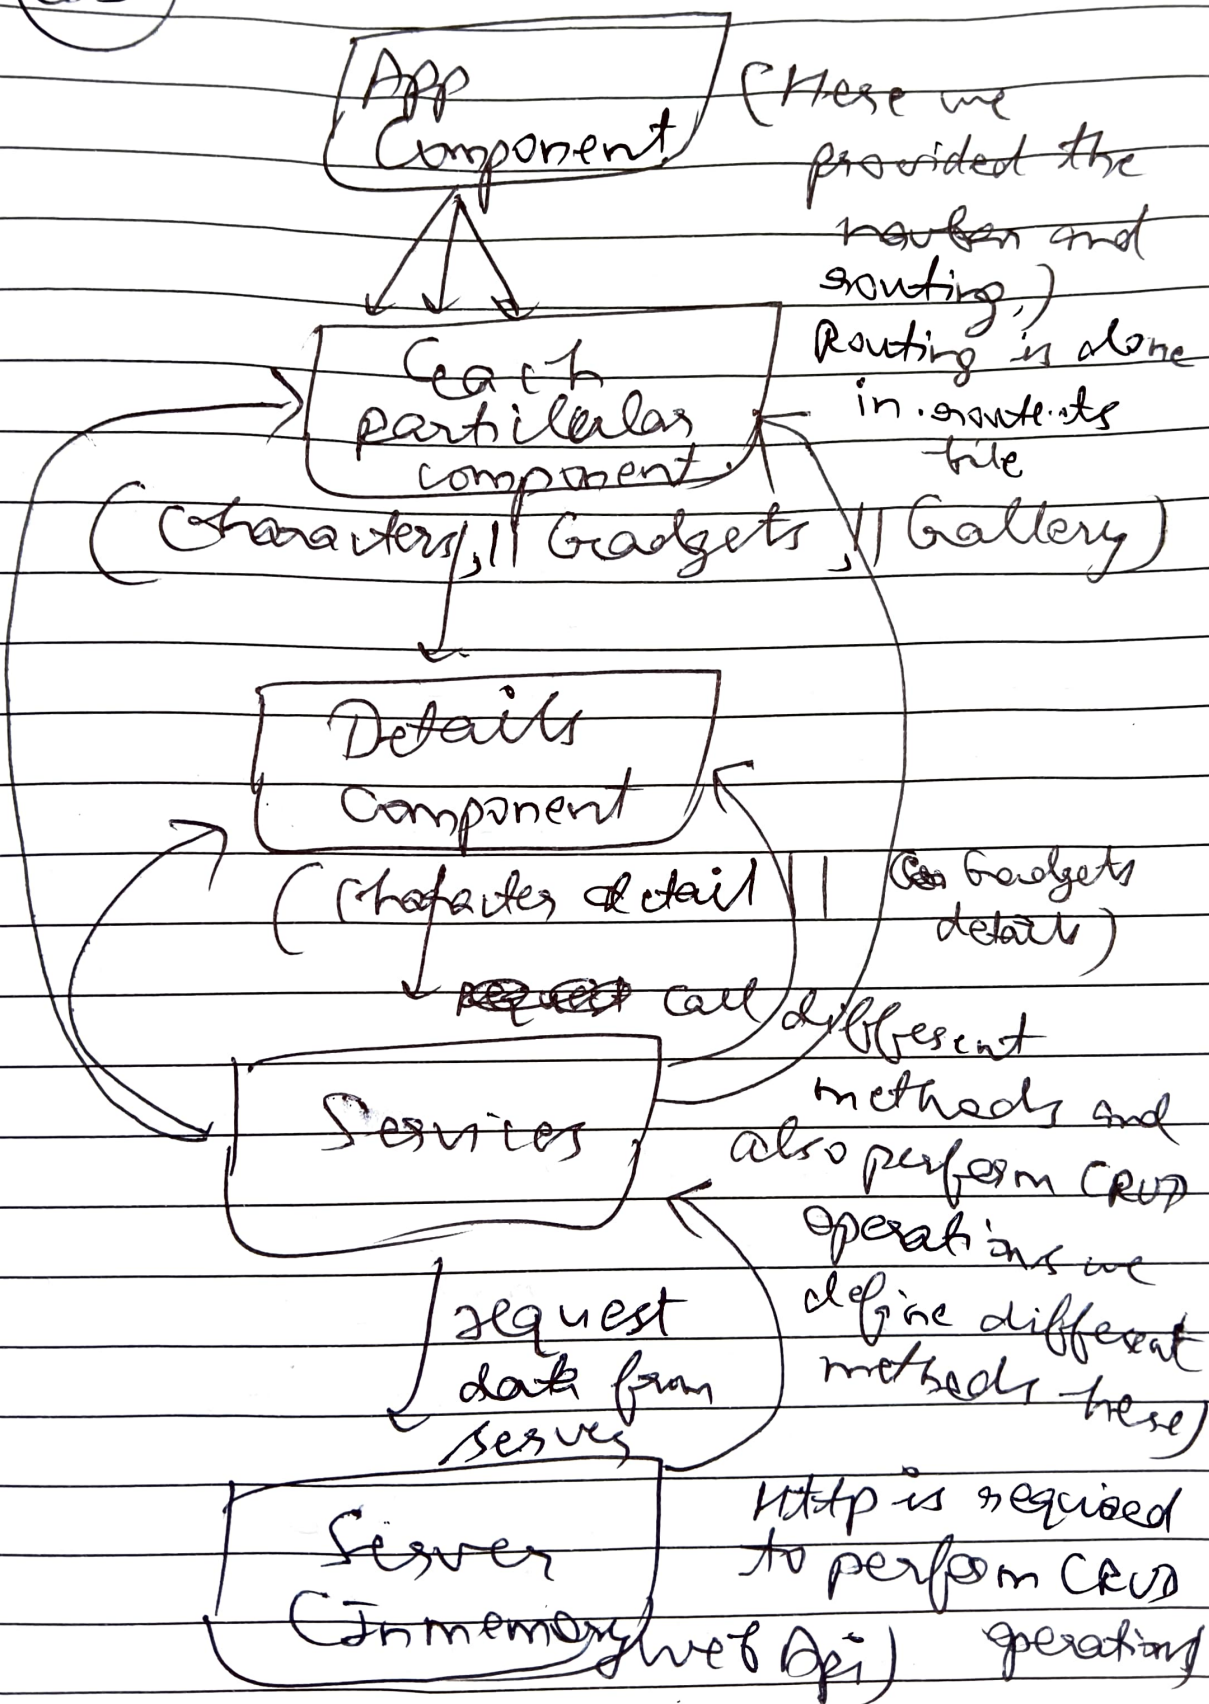 App
Component
(Here we
provided the
and
routing.)
Each
particular
component
Routing is done
in .route.ts
file
(Characters, || Gadgets, || Gallery)
Details
Component
(Character detail || Gadgets
details)
call different
methods and
also perform CRUD
operations we
define different
methods here)
Services
request
data from
server
Server
(Inmemory web Api)
Http is required
to perform CRUD
operations